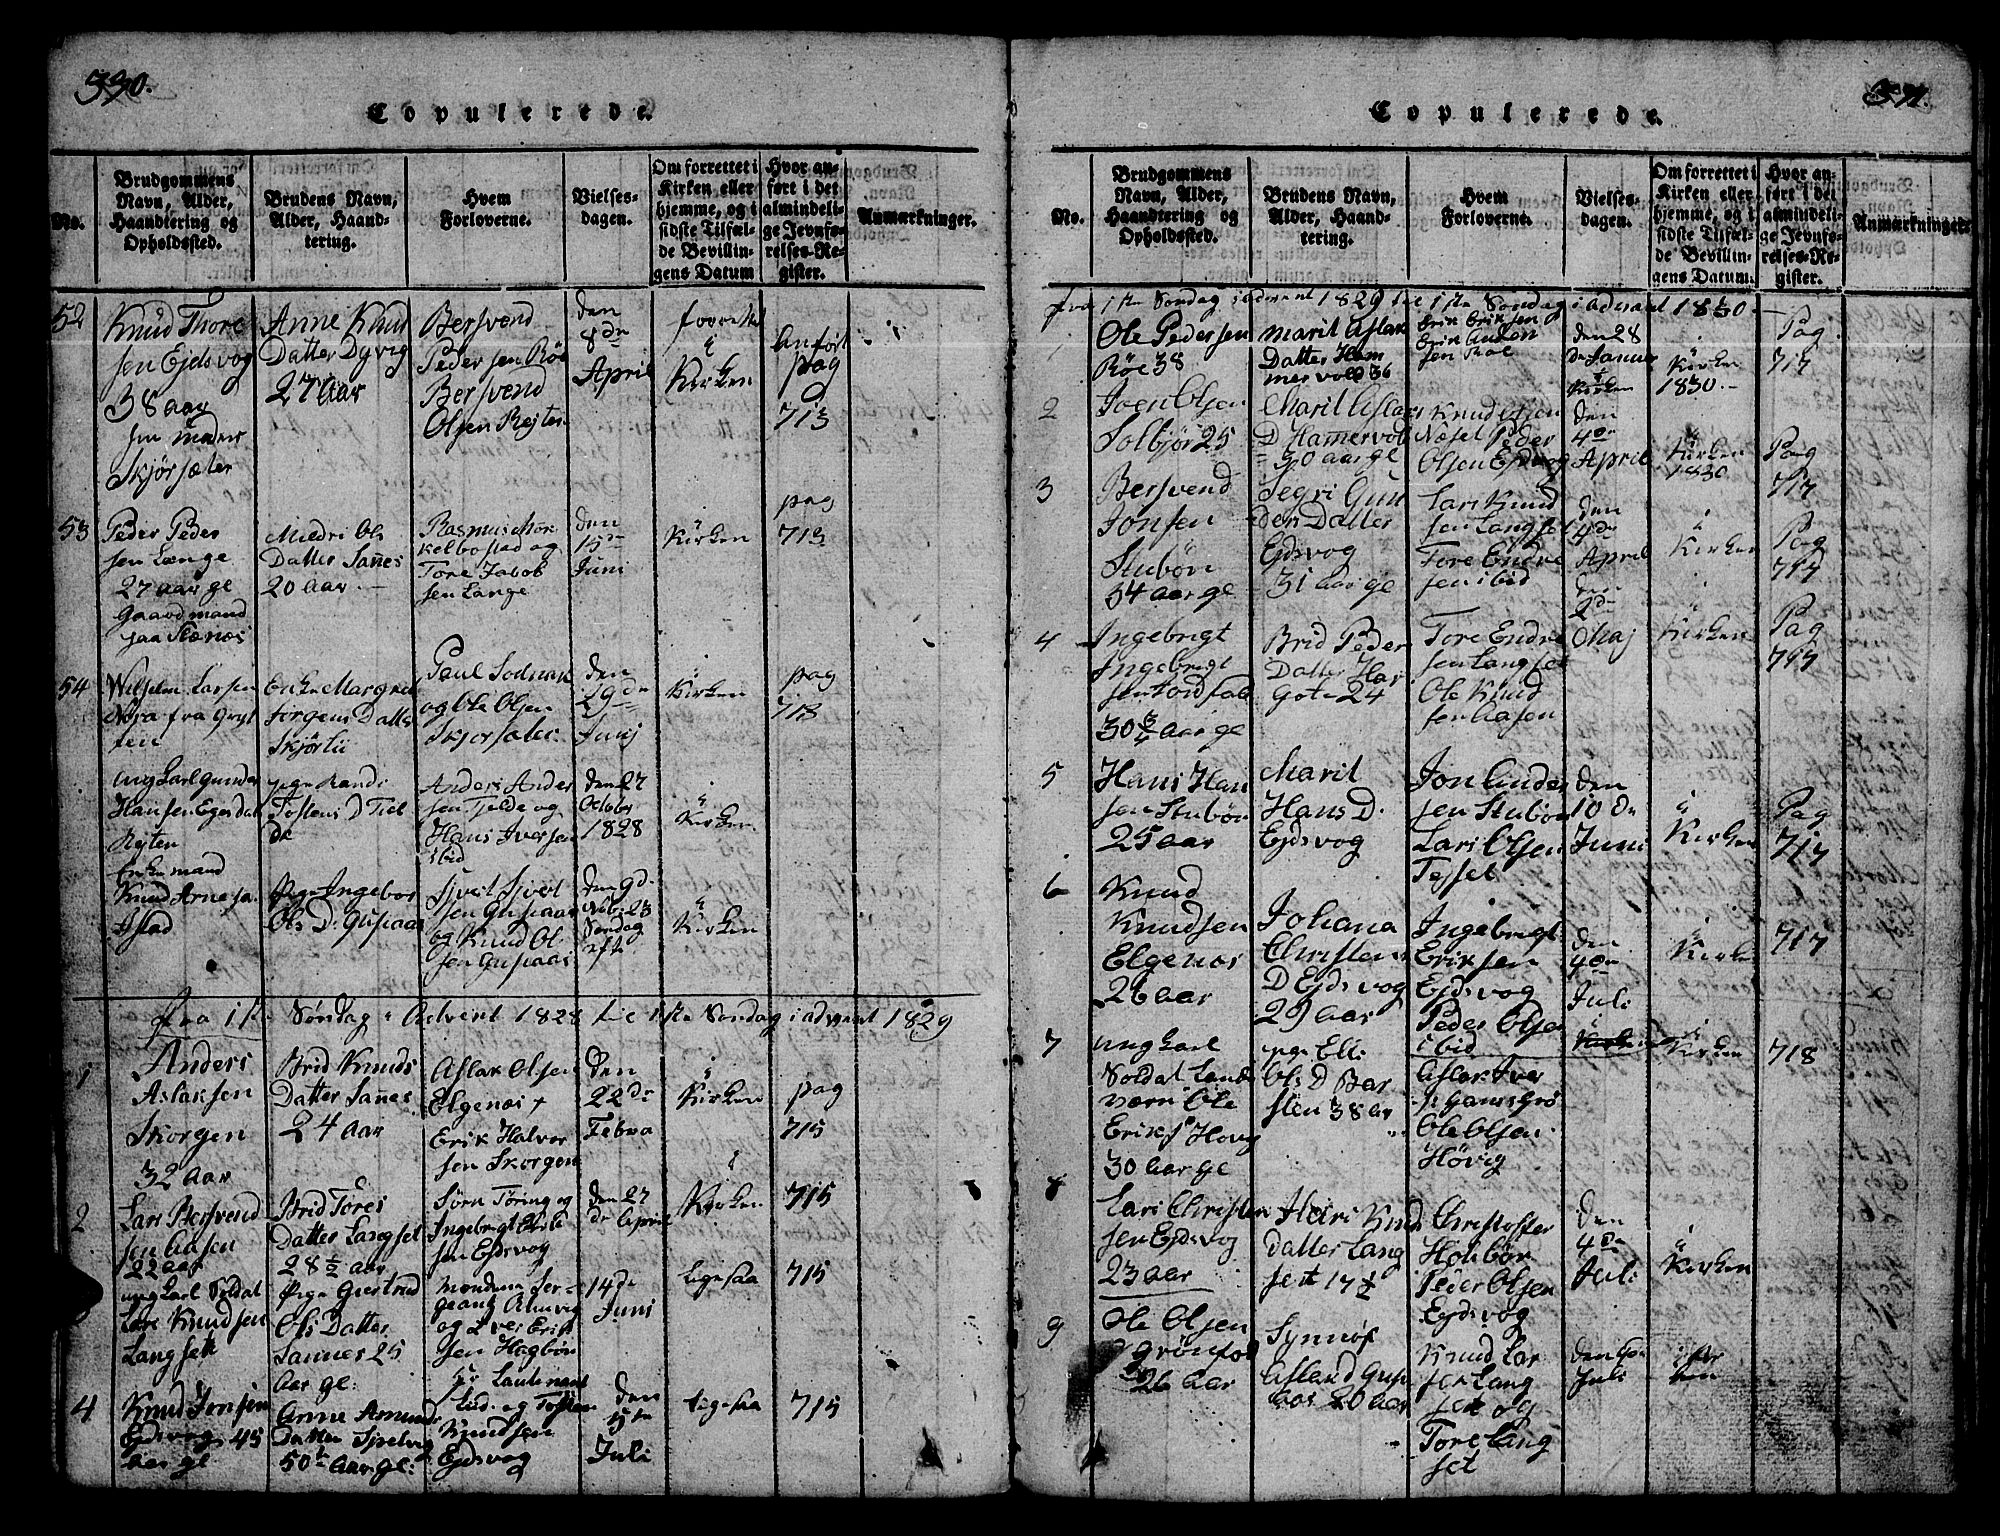 330.
Copulerede.
No.
Brudgommens
Navn, Alder,
Haandtering og
Opholdssted.
Brudens Navn,
Alder, Haand-
tering.
Hvem
Forloverne.
Vielses-
dagen.
Om forrettet i
Kirken eller
hjemme, og i
sidste Tilfæl-
de Bevillin-
gens Datum
Hvor an-
ført i det
almindeli-
ge Jevnfø-
relses-Re-
gister.
Anmærkninger.
52
Knud Thore
sen Ejdsvog
38 aar
Skjörsæter
Anne Knud
Datter Dyvig
27 Aar
Bersvend
Pedersen Röe
Bersvend
Olsen Rejten
den
8de
April
Kirken
anfört
pag
713
53
Peder Peder
sen Længe
27 aar gl
Gaardmand
paa
Ols
Datter Sanes
20 Aar.
Rasmus Tor
kelbostad og
Tore Jacob
sen Lange
den
15de
Juni
Kirken
pag
713
54
Wilhelm Larsen
fra
Enke Margret
Jörgens Datter
Skjörlii
Paul
og Ole Olsen
Skjorsæter
den
29de
Junj
Kirken
pag
713
ung Karl Gunder
Hansen Egersdal
Rejten
pige Randi
Tostens D
Anders Ander
sen Tjelde og
Hans Iversen
ibid
den 27
October
1828
Kirken
Enkemand
Knud Arnesen
pige Ingebor
Ols D. Gusiaas
Sivert Sivert
sen Gusiaas
og Knud Ol
sen Gusiaas
den 9de
Söndag
Kirken
fra 1ste Söndag i Advent 1828 til 1ste Söndag i advent 1829
1
Anders
Aslaksen
Skorgen
32 Aar
Brid Knuds
Datter Sanes
24 Aar
Aslak Olsen
Elgenæs +
Erik Halvor
sen Skorgen
den
22de
Febru
Kirken
pag
715
2
Lars Bersvend
sen Aasen
22 aar
Brid Tores
Datter Langset
28 ½ aar
Sörn Töring og
Ingebrigt Erik
sen Ejdsvog
den 27
de Aprill
Kirken
715
ung Karl Soldat
Lars Knudsen
Langset
Pige Giertrud
Ols Datter
Sannes 25
Aar gl:
og Iver Erik
sen Hagbön
14de
Juni
ligesaa
715
4
Knud Jensen
Ejdsvog 45
aar gl
Anne Amunds
Datter Sjølvig
50 Aar gl:
Hr Lautenant
Lid. og Tosten
Knudsen
Ejdsvog
den
15de
Juli
ligesaa
715
331.
Copulerede.
No.
Brudgommens
Navn, Alder,
Haandtering og
Opholdssted.
Brudens Navn,
Alder, Haand-
tering.
Hvem
Forloverne.
Vielses-
dagen.
Om forrettet i
Kirken eller
hjemme, og i
sidste Tilfæl-
de Bevillin-
gens Datum.
Hvor an-
ført i det
almindeli-
ge Jevnfø-
relses-Re-
gister.
Anmærkninger.
fra 1ste Söndag i advent 1829 til 1ste Söndag i advent 1830
1
Ole Pedersen
Röe 38
Marit Aslak
Datter Ham
mervold 36
Erik Eriksen og
Erik Anden
sen Roe
den 28
de Januar
Kirken
1830.
Pag
717
2
Joen Olsen
Solbjör 25
Marit Aslaks
D Hamervold
30 aar gl
Knud
Næset Peder
Olsen Ejdsvog
den
4de
April
Kirken
1830
Pag
717
3
Bersvend
Jonsen
Stubön
34 Aar gl
Segri Gun
ders Datter
Ejdsvog
31 aar gl
Lars Knud
sen Langset
Tore Endre
sen ibid
den
4de
April
Kirken
Pag
717
4
Ingebrigt
Ingebrigt
sen
30 ¾ Aar gl
Brid Peder
Datter Has
gota 24
Tore Endre
sen Langset
Ole Knud
sen Aasen
den
2de
Maj
Kirken
Pag
717
5
Hans Han
sen Stubön
25 aar
Marit
Hans D.
Ejdsvog
Jon Ander
sen Stubön
Lars Olsen
Tejset
den
10de
Juni
Kirken
Pag
717
6
Knud
Knudsen
Elgenæs
26 aar
Johana
Christens
D Ejdsvog
29 Aar
Ingebrigt
Eriksen
Ejdsvog
Peder Olsen
ibid
den
4de
Juli
Kirken
717
7
ung Karl
Soldat Lands
værn Ole
Eriks Hovig
30 Aar gl
pge Elli
Ols D Bar
sten 38 ar
Aslak Iver
Ole Olsen
Hövig
Kirken
718
8
Lars Christen
sen Ejdsvog
23 aar
Mari Knud
datter Lang
set 17 ½
Christoffer
Holibör
Peder Olsen
Ejdsvog
den
4de
Juli
Kirken
9
Ole Olsen
Grönfod
26 Aar
Synnöf
Aslaks D Gusi
aas 20 Aar
Knud Lar
sen Lang
set og
Tore Lang
set
den
Juli
i Kir
ken